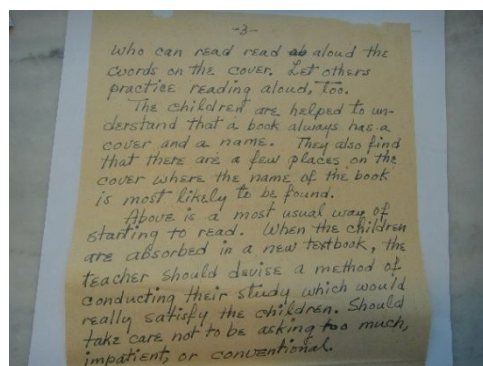 -3-
who can read read aloud the
words on the cover. Let others
practice reading aloud, too.
The children are helped to un-
derstand that a book always has a
cover and a name. They also find
that there are a few places on the
cover where the name of the book
is most likely to be found.
Above is a most usual way of
starting to read. When the children
are absorbed in a new textbook, the
teacher should devise a method of
conducting their study which would
really satisfy the children. Should
take care not to be asking too much,
impatient, or conventional.